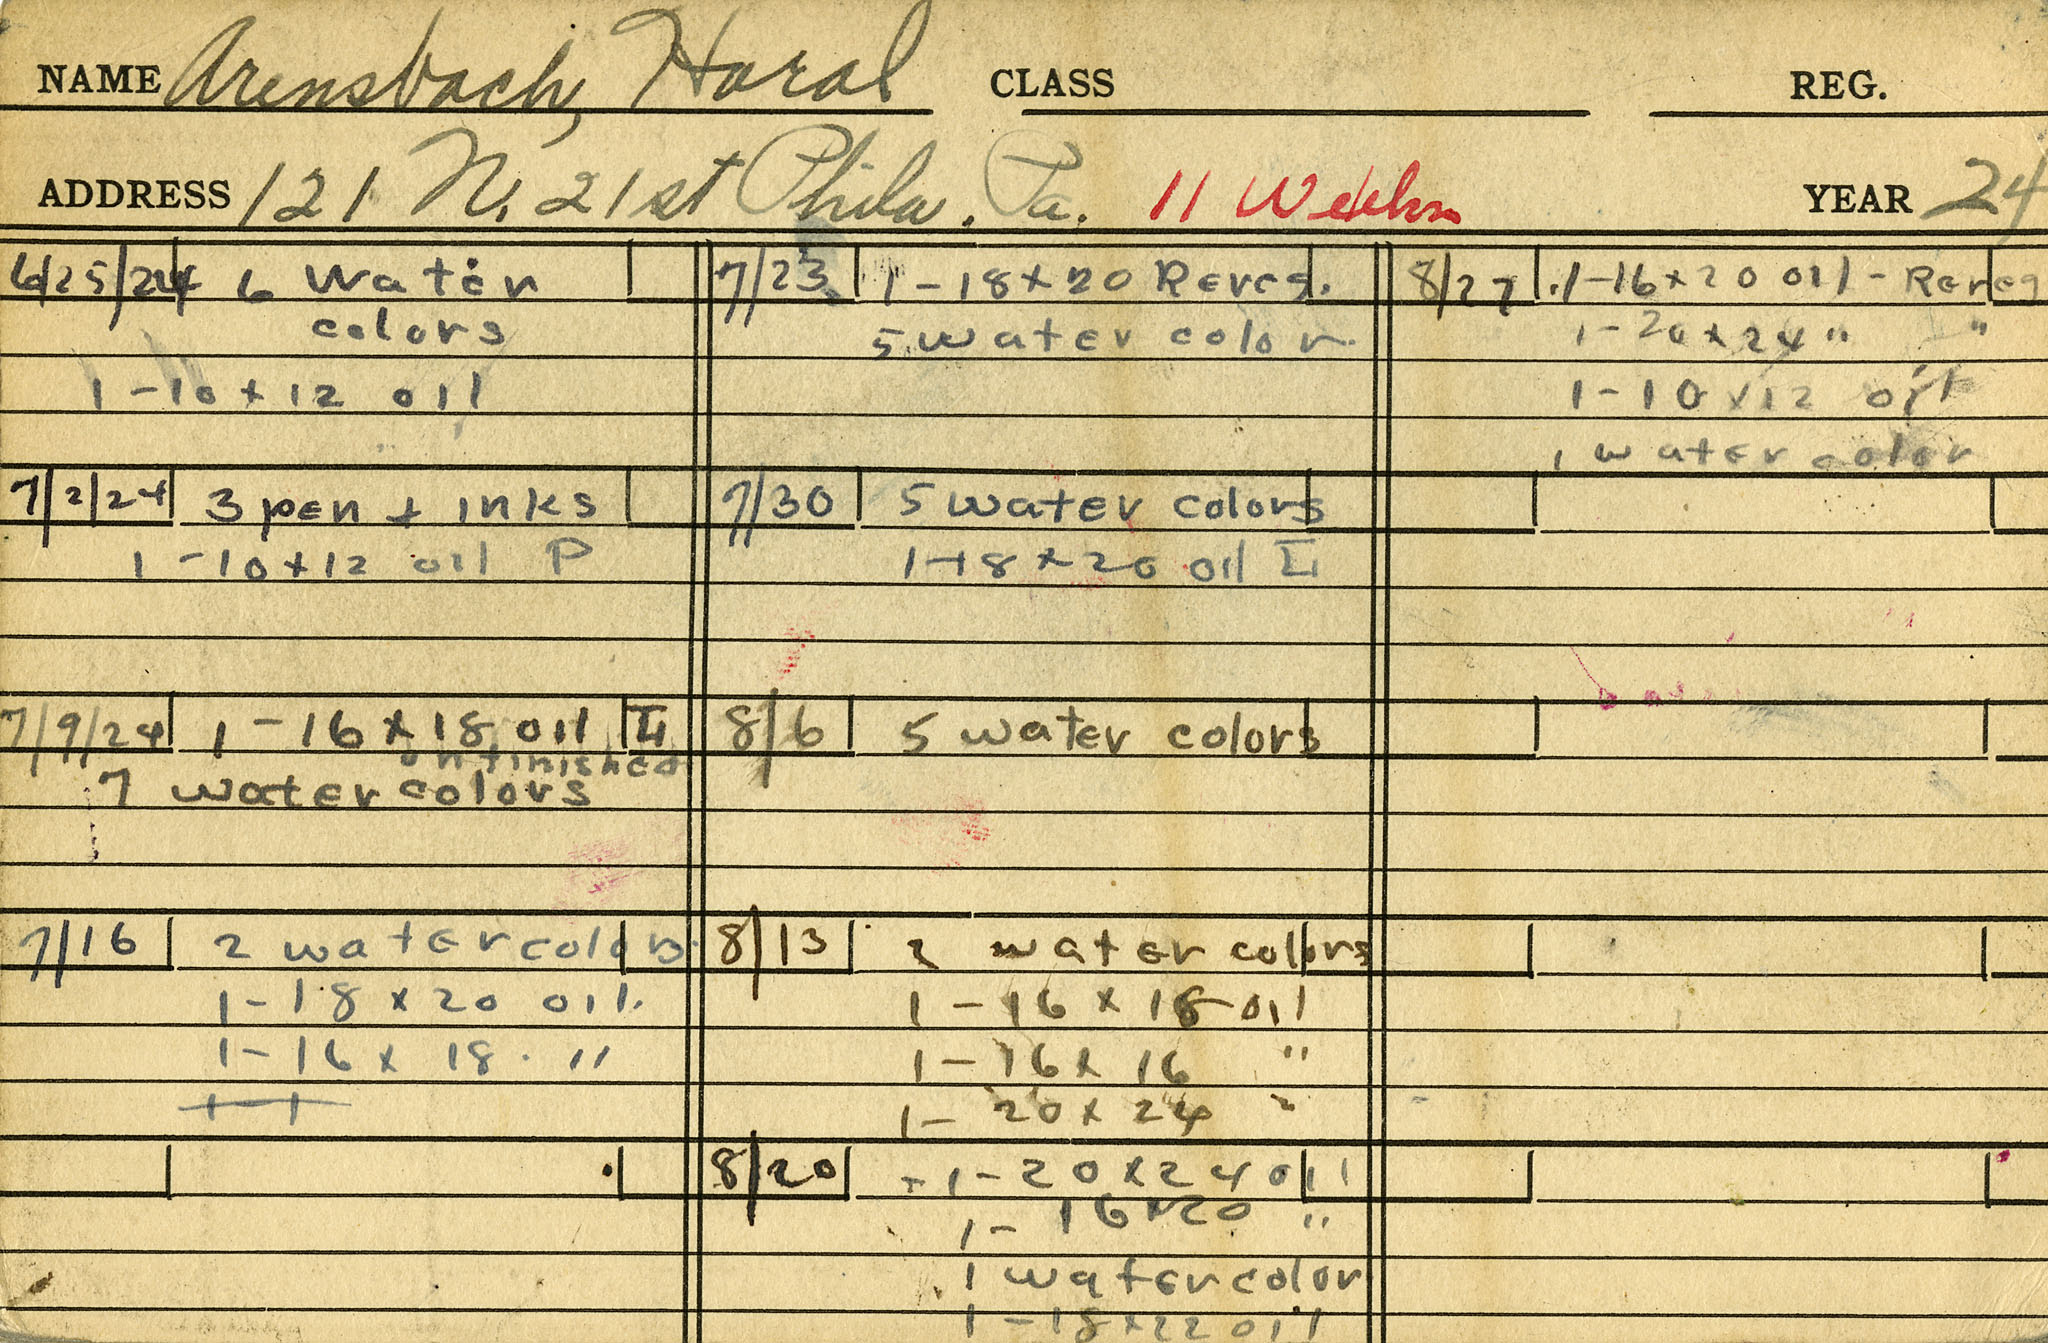 NAME Arensbach, Haral CLASS REG.
ADDRESS 121 N. 21st Phila. Pa. 11 Weeks YEAR 24
6/25/24 6 Water
colors
1-10x12 oil
7/2/24 3 pen + inks
1-10x12 oil P
7/9/24 1-16x18 oil
unfinished
7 water colors
7/16 2 water colors
1-18x20 oil.
1-16x18. "
7/23 1-18x20 Rereg.
5 water color
7/30 5 water colors
1-18x20 oil
8/6 5 water colors
8/13 2 water colors
1-16x18 oil
1-16x16 "
1-20x24 "
8/20 1-20x24 oil
1-16x20 "
1 water color
1-18x22 oil
8/27 1-16x20 oil - Rereg
1-20x24 " "
1-10x12 oil
1 water color